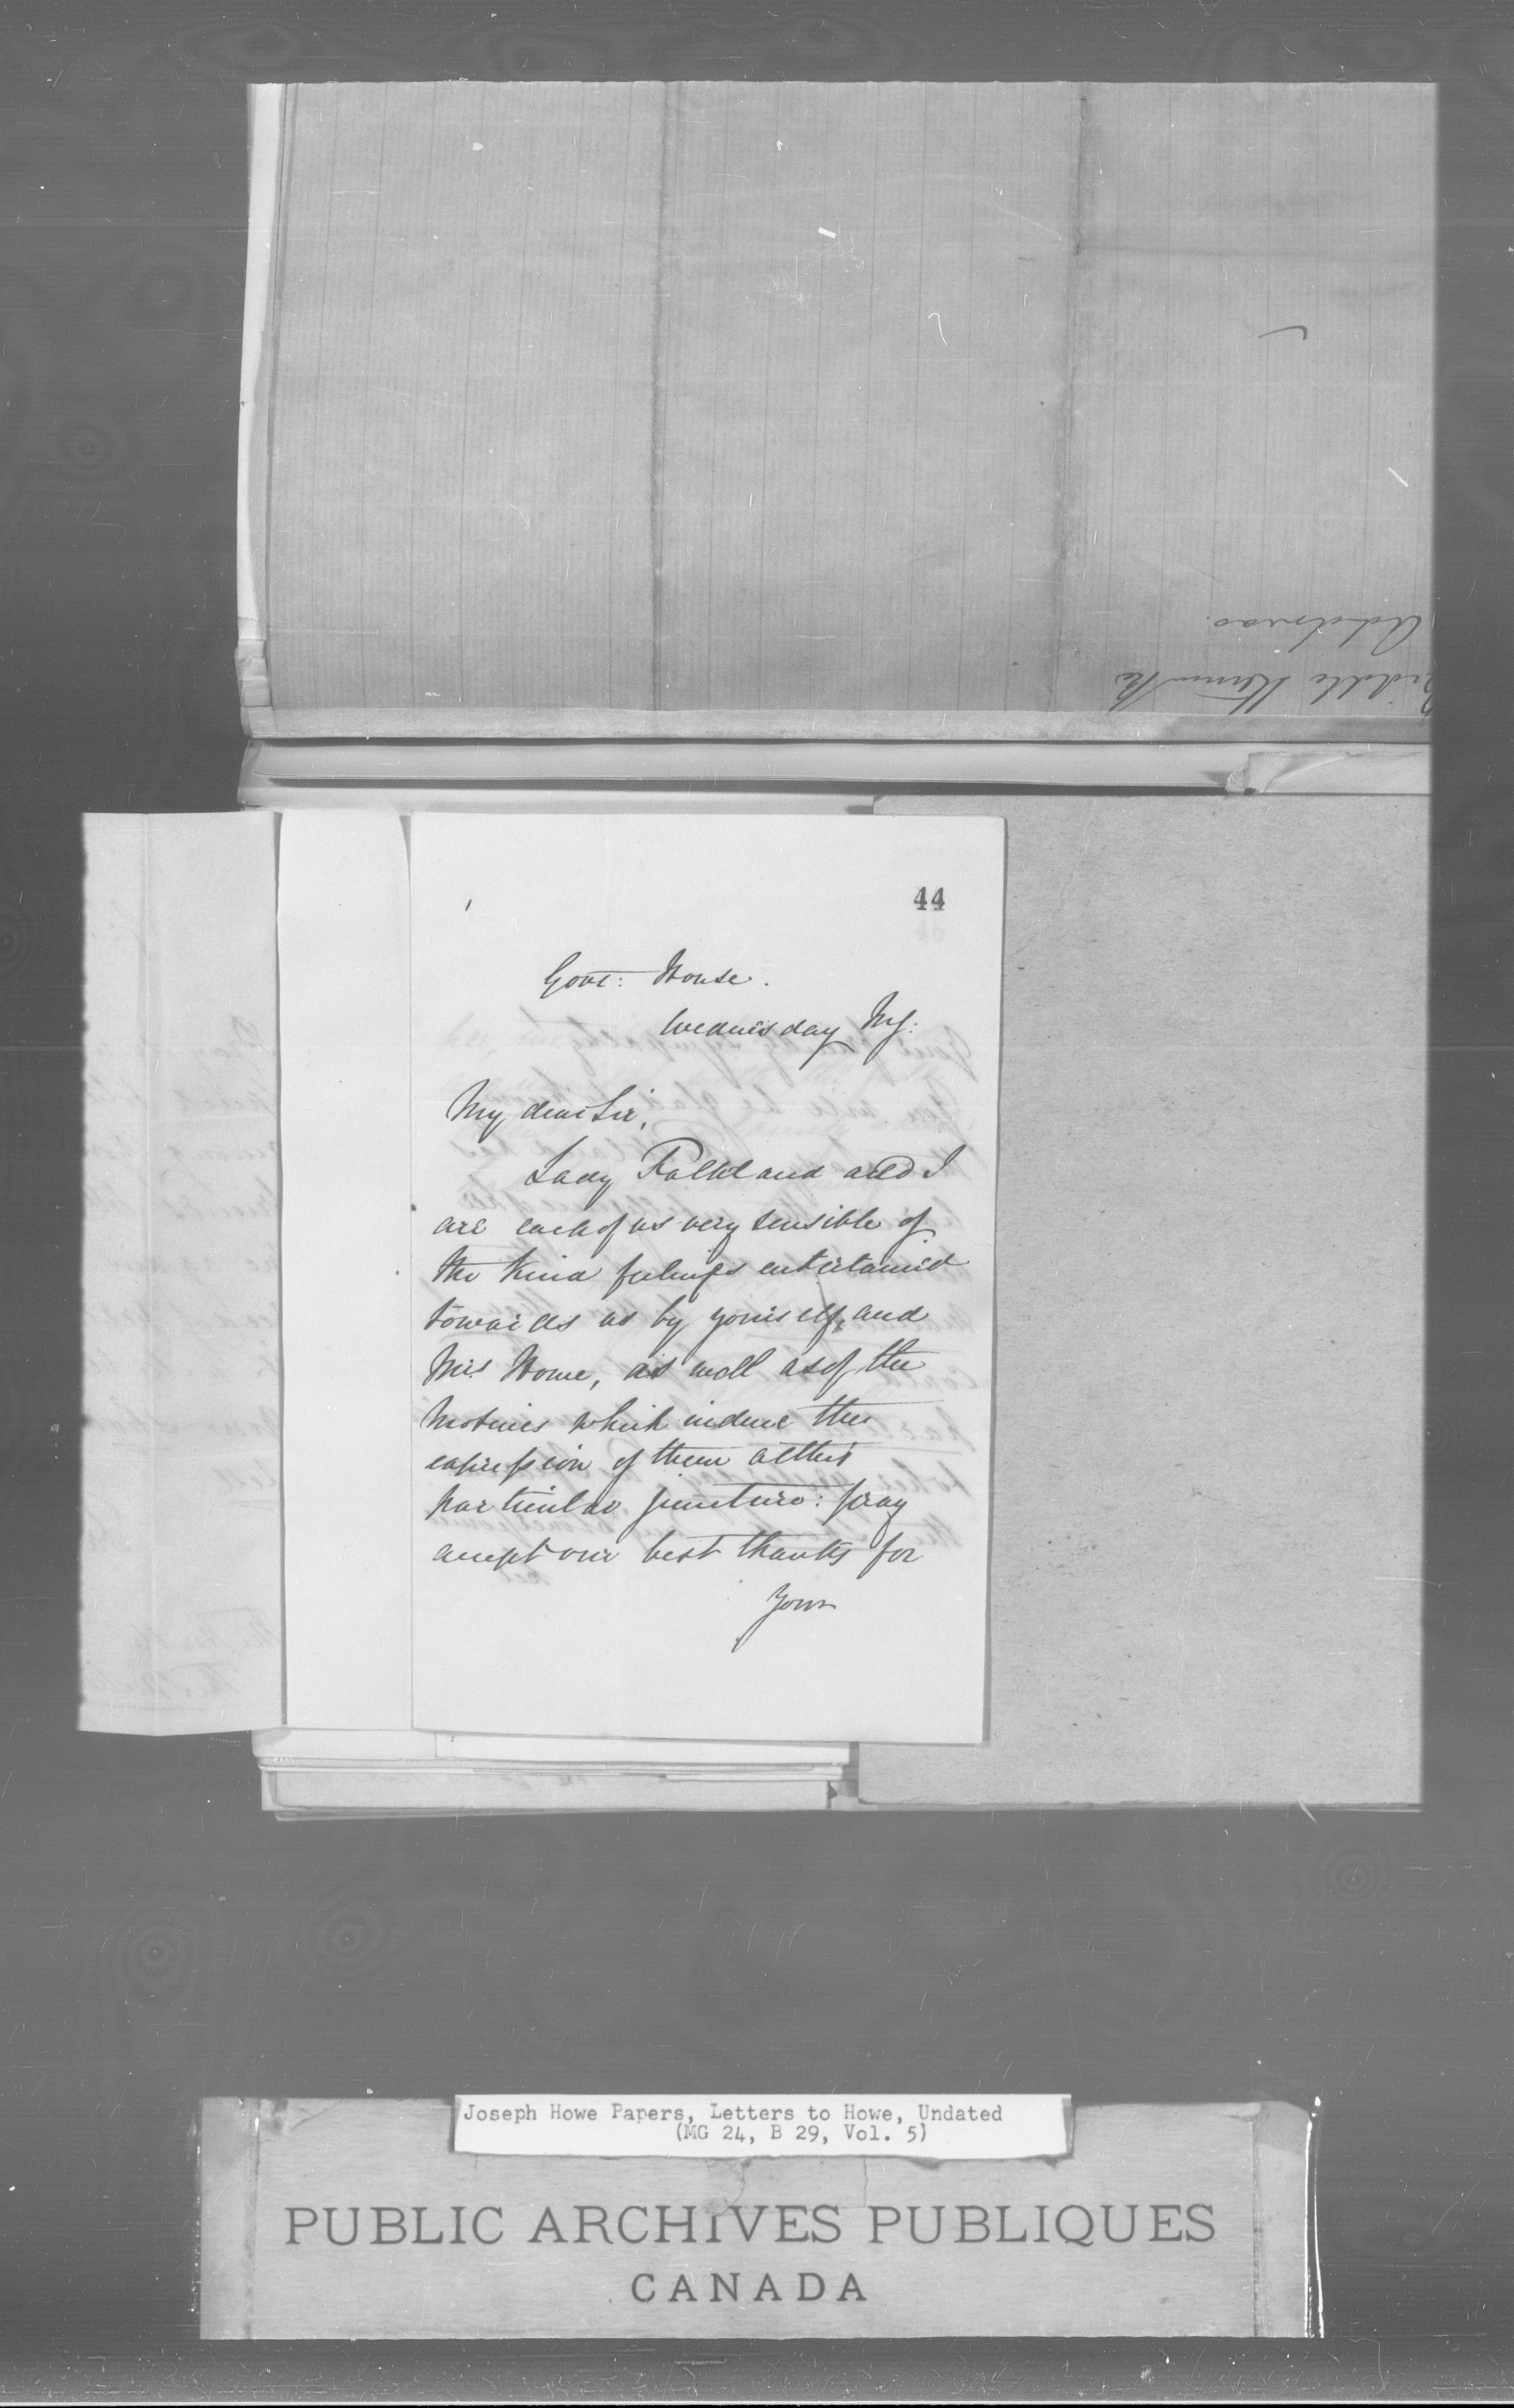 44
Govt: House.
Wednesday Mg:
My dear Sir,
Lady Falkland and I
are each of us very sensible of
the kind feelings entertained
towards us by yourself, and
Mrs Howe, as well as of the
Motives which induce the
expression of them at this
particular juncture: pray
accept our best thanks for
Your
Address.
Joseph Howe Papers, Letters to Howe, Undated
(MG 24, B 29, Vol. 5)
PUBLIC ARCHIVES PUBLIQUES
CANADA